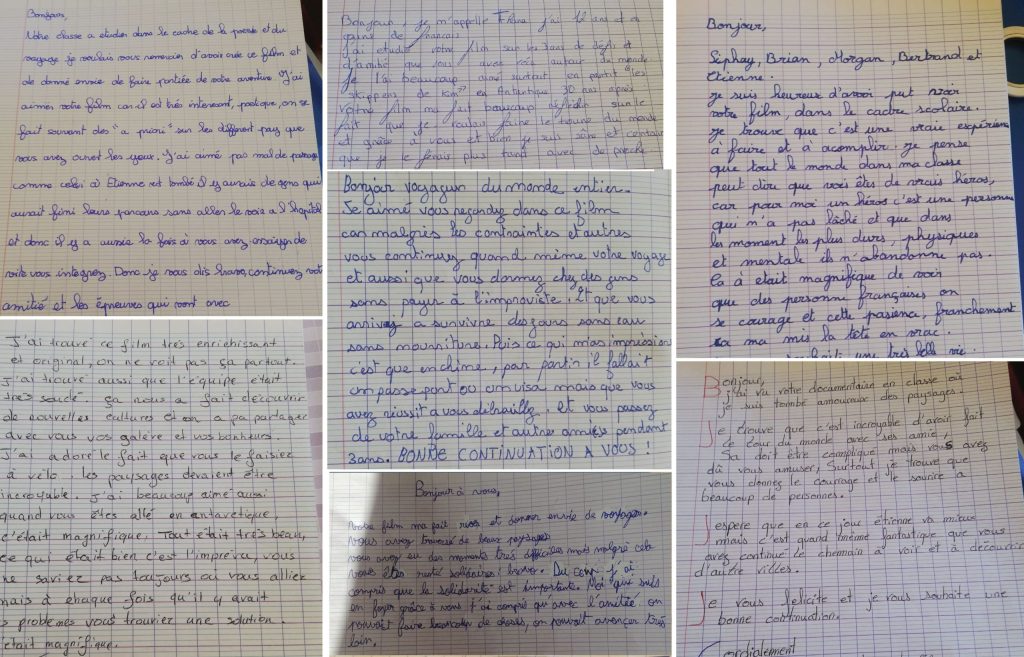 Bonjour,
Notre classe a etudier dans le cadre de la poesie et du
voyage je voulais vous remercier d'avoir crée ce film et
de donné envie de faire partiée de votre aventure. J'ai
aimer votre film car il est très interessant, poetique, on se
fait souvent des "a priori" sur les différent pays que
vous avez ouvert les yeux. J'ai aimé pas mal de passage
comme celui où Etienne est tombé il y aurais de gens qui
aurait fini leurs parcours sans aller le voir a l'hopital
et donc il y a aussie la fois où vous avez essaiyer de
vous integrez. Donc je vous dis bravo, continuez votre
amitié et les épreuves qui vont avec
J'ai trouvé ce film très enrichissant
et original, on ne voit pas ça partout.
J'ai trouvé aussi que l'équipe était
très soudé. ça nous a fait découvrir
de nouvelles cultures et on a pa partager
avec vous vos galère et vos bonheurs.
J'ai adoré le fait que vous le faisiez
à vélo : les paysages devaient être
incroyable. J'ai beaucoup aimé aussi
quand vous êtes allé en antarctique,
c'était magnifique. Tout était très beau,
ce qui était bien c'est l'imprévu, vous
ne saviez pas toujours où vous alliez
mais à chaque fois qu'il y avait
s problèmes vous trouviez une solution.
C'était magnifique.
Bonjour, je m'appelle j'ai 12 ans et en
J'ai etudié votre film sur les 3 ans de défis et
d'amitié que vous avez fait autour du monde
Je l'ai beaucoup aimé surtout en partant les
skippers de km² en Antartique 30 ans après
votre film ma fait beaucoup réfléchir sur le
fait que je voulais faire le tour du monde
et grâce à vous et bien je suis sûre et certaine
que je le ferais plus tard avec des proche
Bonjour voyageur du monde entier.
Je aimé vous regardez dans ce film
car malgrès les contraintes et autres
vous continuez quand même votre voyage
et aussi que vous dormez chez des gens
sans payer à l'improviste. Et que vous
arrivez a survivre des jours sans eau
sans nourriture. Puis ce qui m'as impressioné
c'est que en chine, par partir il fallait
un passe port ou un visa mais que vous
avez réussit a vous débrouillez. Et vous passez
de votre famille et autres amiẹs pendant
3 ans. BONNE CONTINUATION A VOUS !
Bonjour à vous,
Votre film ma fait rever et donner envie de voyager.
vous avez traversé de beaux paysages
vous avez eu des moments très difficiles mais malgrè cela
vous êtes resté solidaires ! bravo. Du coup j'ai
compris que la solidarité est importante. Moi qui suis
en foyer grâce à vous j'ai compris qu'avec l'amitée on
pouvait faire beaucoup de choses, on pouvait avancer très
loin.
Bonjour,
Séphay, Brian, Morgan, Bertrand et
Etienne.
Je suis heureux d'avoir put voir
votre film, dans le cadre scolaire.
Je trouve que c'est une vraie expérience
à faire et à acomplir. Je pense
que tout le monde dans ma classe
peut dire que vois êtes de vrais héros,
car pour moi un héros c'est une personne
qui n'a pas lâché et que dans
les moment les plus durs, physiques
et mentale ils n'abandonne pas.
Ca à etait magnifique de voir
que des personne françaises on
se courage et cette pasience, franchement
sa ma mis la tête en vrac.
une très belle vie.
Bonjour,
j'ai vu votre documentaire en classe où
je suis tombé amoureux des paysages.
Je trouve que c'est incroyable d'avoir fait
le tour du monde avec ses amie,
Sa doit être compliqué mais vous avez
dû vous amuser, Surtout je trouve que
vous donnez le courage et le sourire a
beaucoup de personnes.
J'espere que en ce jour étienne va mieux
mais c'est quand même fantastique que vous
avez continué le chemain à voir et à découvrir
d'autre villes.
Je vous felicite et je vous souhaite une
bonne continuation.
Cordialement